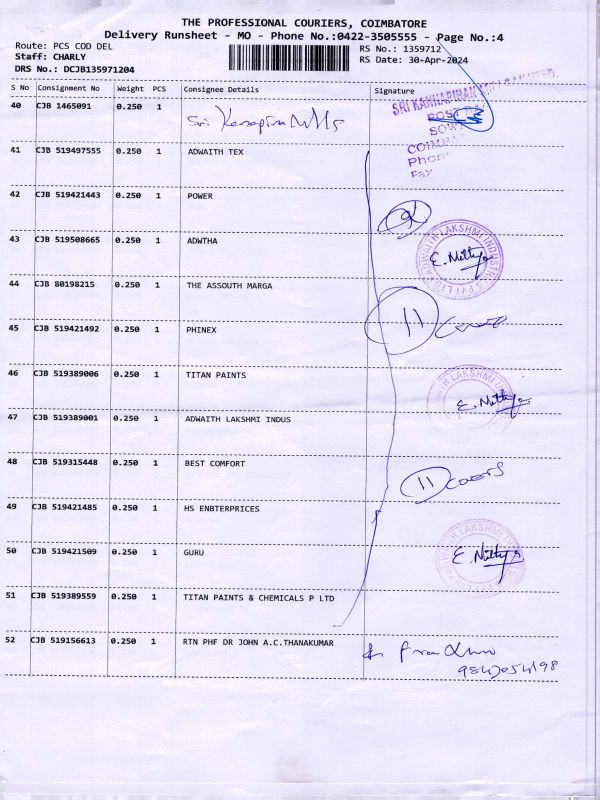 THE PROFESSIONAL COURIERS, COIMBATORE
Delivery Runsheet - MO - Phone No.:0422-3505555 - Page No.:4
Route: PCS COD DEL
Staff: CHARLY
DRS No.: DCJB135971204
RS No.: 1359712
RS Date: 30-Apr-2024
S No Consignment No Weight PCS Consignee Details Signature
40 CJB 1465091 0.250 1 Sri
SRI KANNAPIRAN
POST
SOW
COIMB
Phon
Fax
41 CJB 519497555 0.250 1 ADWAITH TEX
42 CJB 519421443 0.250 1 POWER
43 CJB 519508665 0.250 1 ADWTHA
ADWAITH LAKSHMI INDUSTRIES PVT LTD
E. Nithya
44 CJB 80198215 0.250 1 THE ASSOUTH MARGA
45 CJB 519421492 0.250 1 PHINEX
11
46 CJB 519389006 0.250 1 TITAN PAINTS
E. Nithya
47 CJB 519389001 0.250 1 ADWAITH LAKSHMI INDUS
48 CJB 519315448 0.250 1 BEST COMFORT
11
49 CJB 519421485 0.250 1 HS ENBTERPRICES
50 CJB 519421509 0.250 1 GURU
E. Nithya
51 CJB 519389559 0.250 1 TITAN PAINTS & CHEMICALS P LTD
52 CJB 519156613 0.250 1 RTN PHF DR JOHN A.C.THANAKUMAR
9842054198